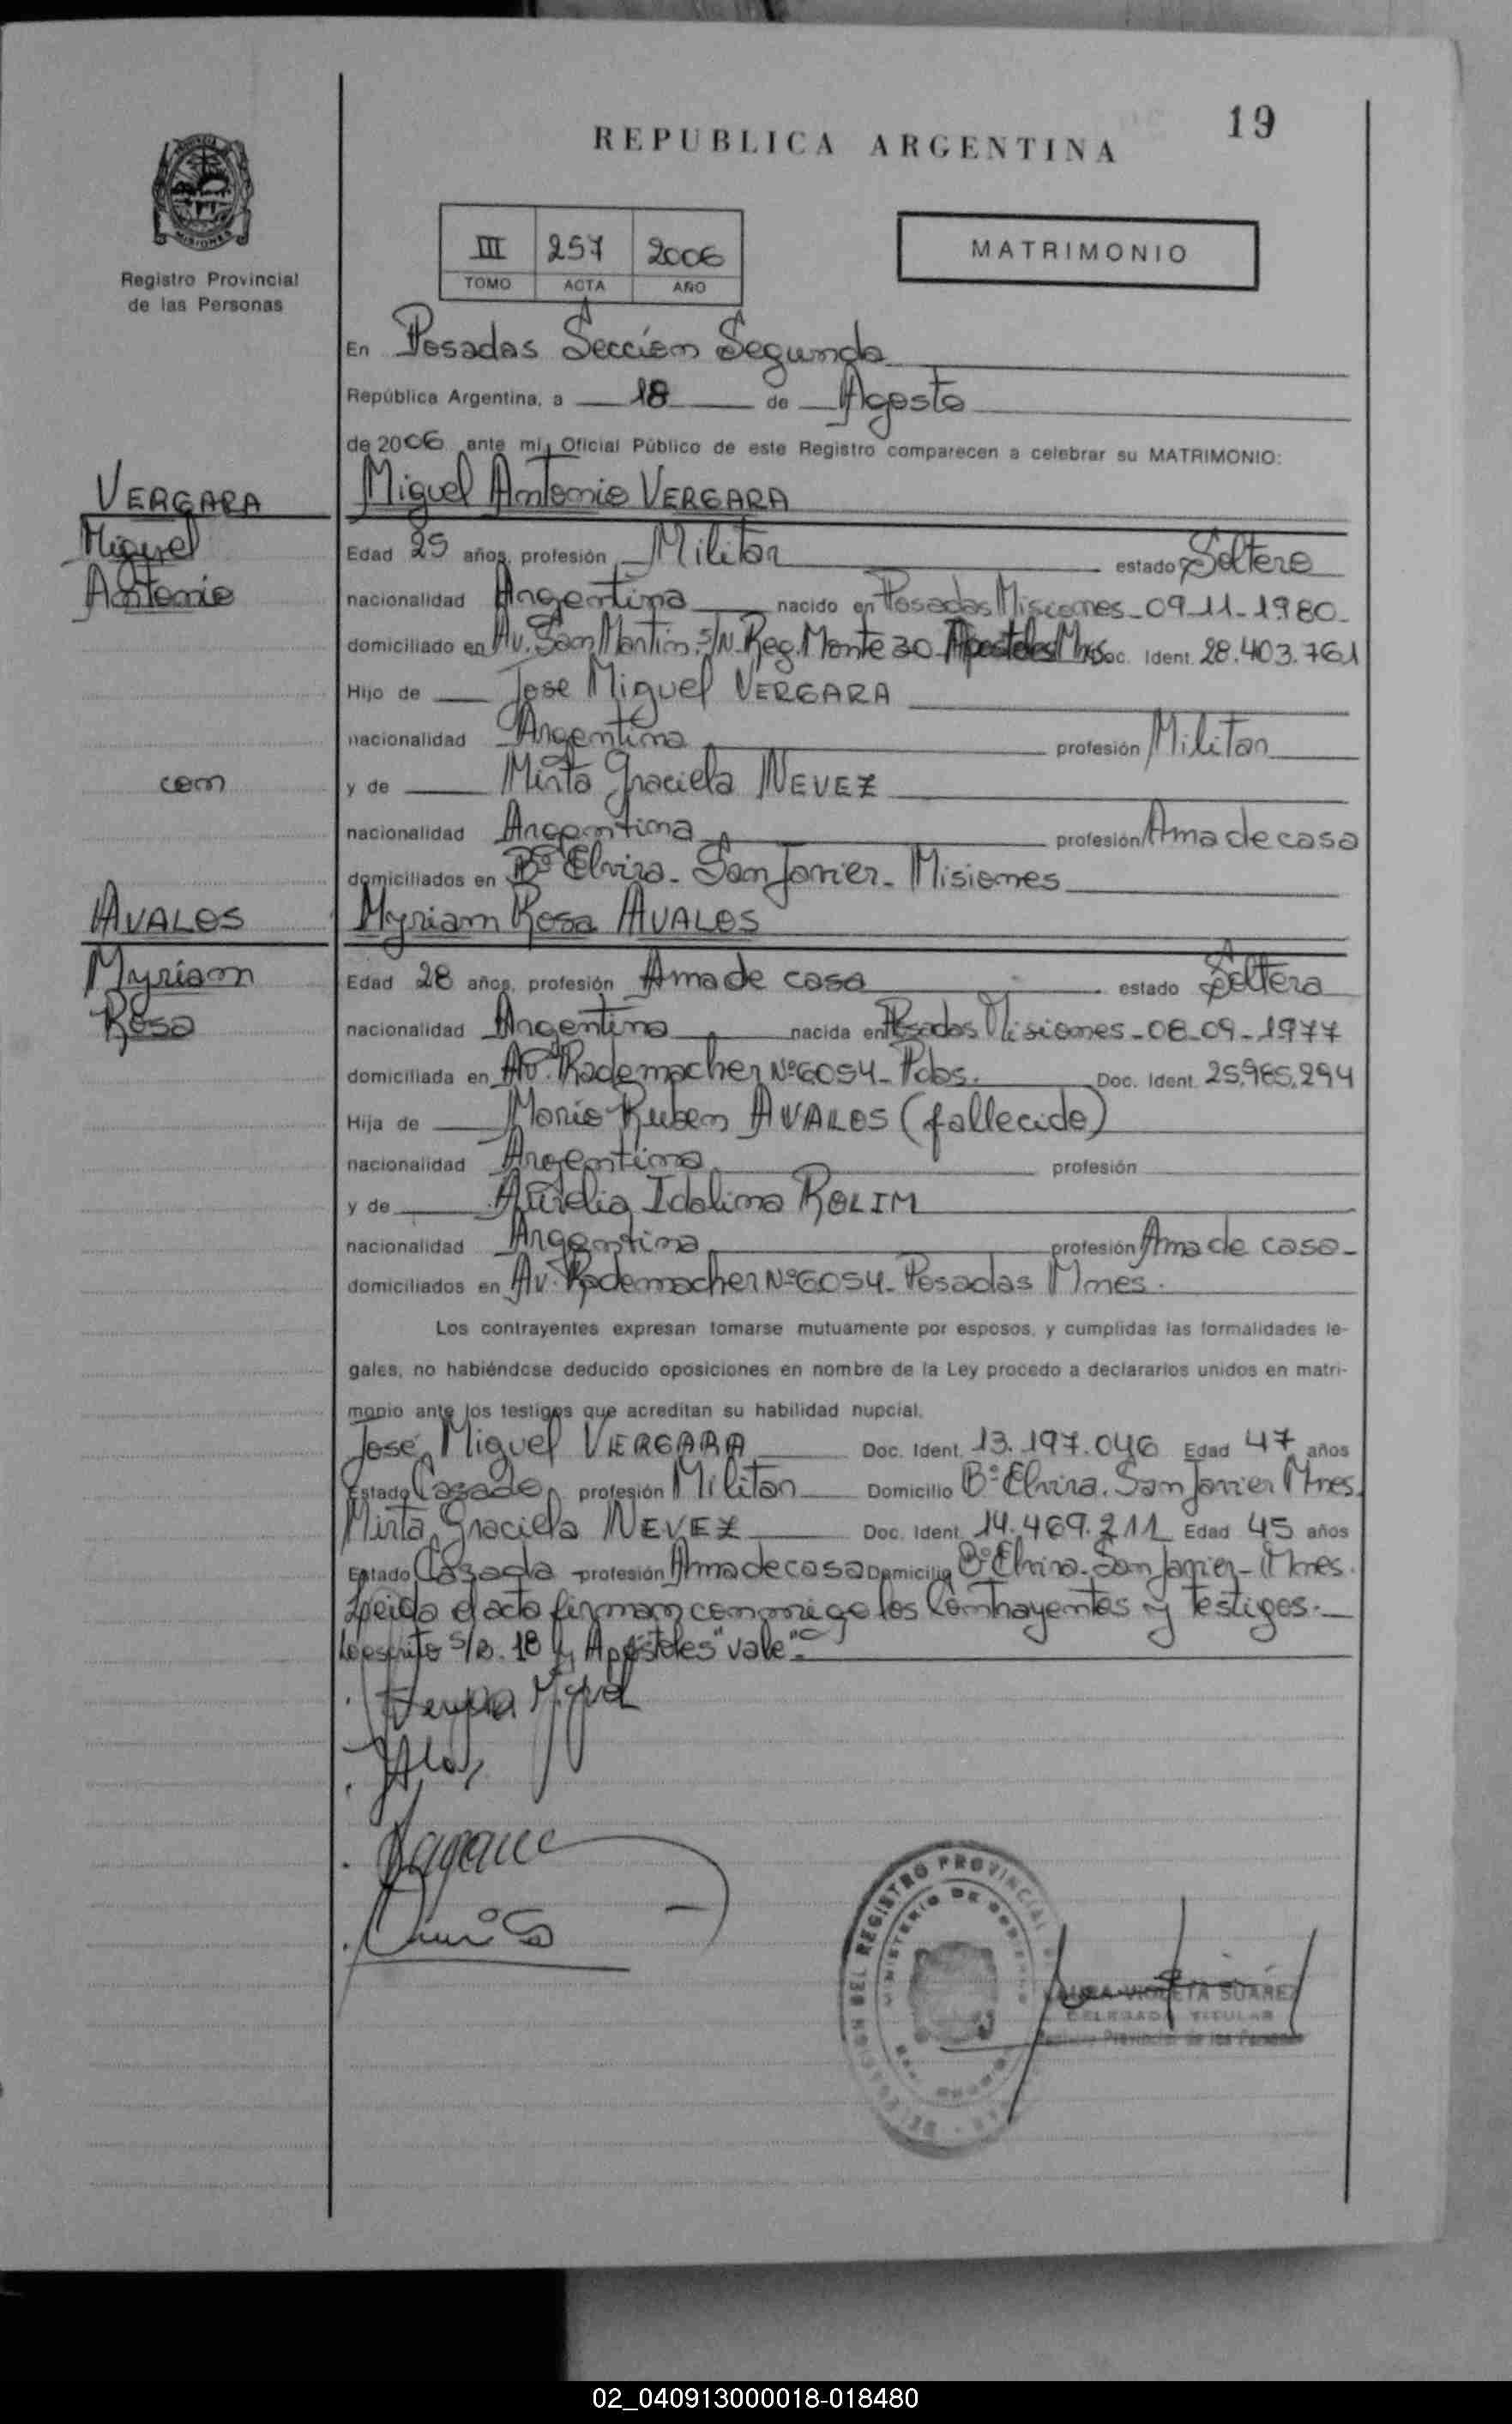 19
REPUBLICA ARGENTINA
MISIONES
Registro Provincial
de las Personas
III 257 2006
TOMO ACTA AÑO
MATRIMONIO
En Posadas Sección Segunda
República Argentina, a 18 de Agosto
de 2006 ante mí, Oficial Público de este Registro comparecen a celebrar su MATRIMONIO:
VERGARA
Miguel
Antonio
con
AVALOS
Myriam
Rosa
Miguel Antonio VERGARA
Edad 25 años, profesión Militar estado Soltero
nacionalidad Argentina nacido en Posadas Misiones - 09-11-1980
domiciliado en Av. San Martín S/N - Reg. Monte 30 Apostoles Mnes. Doc. Ident. 28.403.761
Hijo de Jose Miguel VERGARA
nacionalidad Argentina profesión Militar
y de Mirta Graciela NEVEZ
nacionalidad Argentina profesión Ama de casa
domiciliados en Bº Elvira - San Javier - Misiones
Myriam Rosa AVALOS
Edad 28 años, profesión Ama de casa estado Soltera
nacionalidad Argentina nacida en Posadas Misiones - 08-09-1977
domiciliada en Av. Rademacher Nº 6054 - Pdas. Doc. Ident. 25.985.294
Hija de Mario Ruben AVALOS (fallecido)
nacionalidad Argentina profesión
y de Aurelia Idalina ROLIM
nacionalidad Argentina profesión Ama de casa -
domiciliados en Av. Rademacher Nº 6054 - Posadas Mnes.
Los contrayentes expresan tomarse mutuamente por esposos, y cumplidas las formalidades le-
gales, no habiéndose deducido oposiciones en nombre de la Ley procedo a declararlos unidos en matri-
monio ante los testigos que acreditan su habilidad nupcial.
José Miguel VERGARA Doc. Ident. 13.197.046 Edad 47 años
Estado Casado profesión Militar Domicilio Bº Elvira. San Javier Mnes.
Mirta Graciela NEVEZ Doc. Ident. 14.469.211 Edad 45 años
Estado Casada profesión Ama de casa Domicilio Bº Elvira - San Javier - Mnes.
Leida el acta firman conmigo los Contrayentes y testigos.
Lo escrito s/B. 18 y Apóstoles "vale".
Vergara Miguel
DEL REGISTRO PROVINCIAL
MINISTERIO DE GOBIERNO
LAURA VIOLETA SUAREZ
DELEGADA TITULAR
Registro Provincial de las Personas
02_040913000018-018480